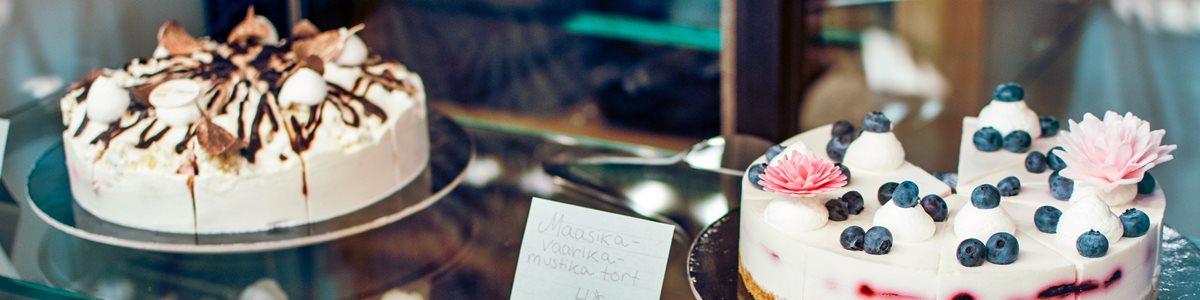 Maasika-
vaarika-
mustika tort